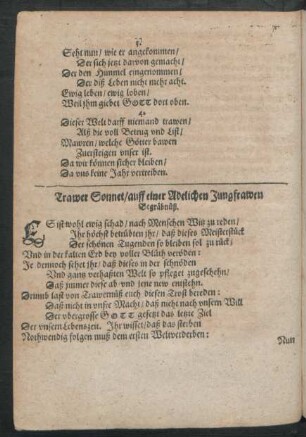 3.
Seht nun / wie er angekommen /
Der sich jetzt darvon gemacht /
Der den Himmel eingenommen /
Der diß Leben nicht mehr acht.
Ewig leben / ewig loben /
Weil jhm giebet GOTT dort oben.
4.
Dieser Welt darff niemand trawen /
Alß die voll Betrug vnd List /
Mawren / welche Götter bawen
Zuersteigen vnser ist.
Da wir können sicher bleiben /
Da vns keine Jahr vertreiben.
Trawer Sonnet / auff einer Adelichen Jungfrawen
Begräbnüß.
ES ist wohl ewig schad / nach Menschen Witz zu reden /
Ihr höchst betrübten jhr / daß dieses Meisterstück
Der schönen Tugenden so bleiben sol zu rück /
Vnd in der kalten Erd bey voller Blüth veröden:
Je dennoch sehet jhr / daß dieses in der schnöden
Vnd gantz verhasten Welt so pfleget zugeschehn /
Daß jmmer diese ab vnd jene new entstehn.
Drumb last von Trawernüß euch diesen Trost bereden:
Daß nicht in vnser Macht / daß nicht nach vnsern Will
Der vbergrosse GOTT gesetzt das letzte Ziel
Der vnsern Lebenszeit. Ihr wisset / daß das sterben
Nothwendig folgen muß dem ersten Weltverderben:
Nun